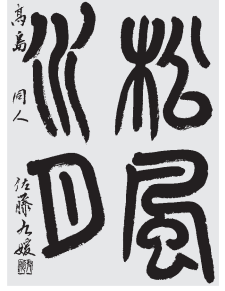 松風
水月
高島 同人 佐藤九媛